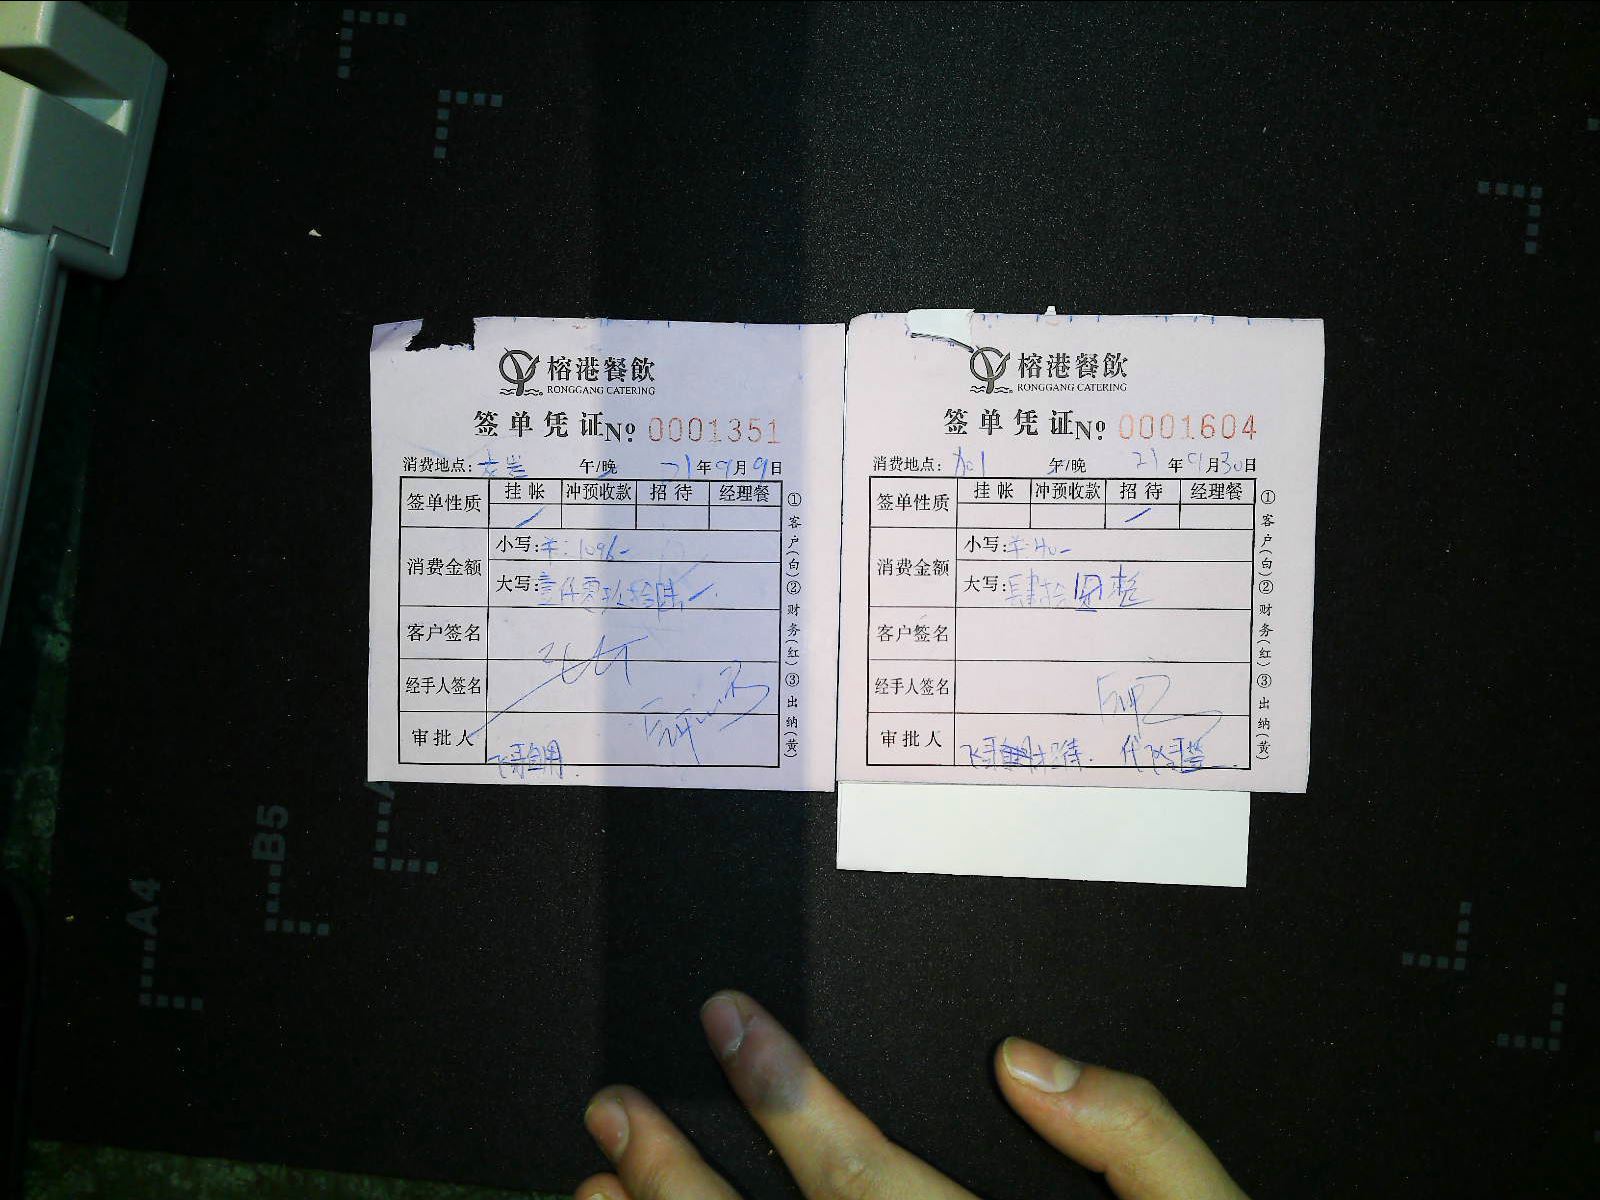 榕港餐飲
RONGGANG CATERING
签单凭证No 0001351
消费地点: 午/晚 21年9月9日
签单性质 挂帐 冲预收款 招待 经理餐
消费金额 小写:¥:1096-
大写:壹仟零玖拾陆
客户签名
经手人签名
审批人 飞哥自用.
①客户(白)②财务(红)③出纳(黄)
榕港餐飲
RONGGANG CATERING
签单凭证No 0001604
消费地点: 午/晚 21年9月30日
签单性质 挂帐 冲预收款 招待 经理餐
消费金额 小写:¥:40-
大写:肆拾圆整
客户签名
经手人签名
审批人 飞哥招待. 代飞哥签
①客户(白)②财务(红)③出纳(黄)
A4
B5
A